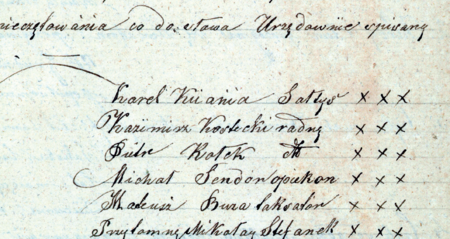 pieczętowania co do słowa Urzędownie spisany
Karol Kuania Sołtys x x x
Kazimirz Kosłecki radny x x x
Piotr Kołek x x x
Michał Sendor opiekon x x x
Mateusz Bura taksator x x x
Przytomny Mikołay Stefanek x x